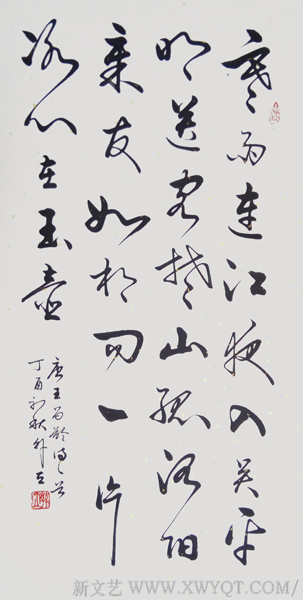 寒雨連江夜入吴平
明送客楚山孤洛阳
亲友如相问一片
冰心在玉壶
唐王昌龄诗一首
丁酉初秋
新文艺 WWW.XWYQT.COM/